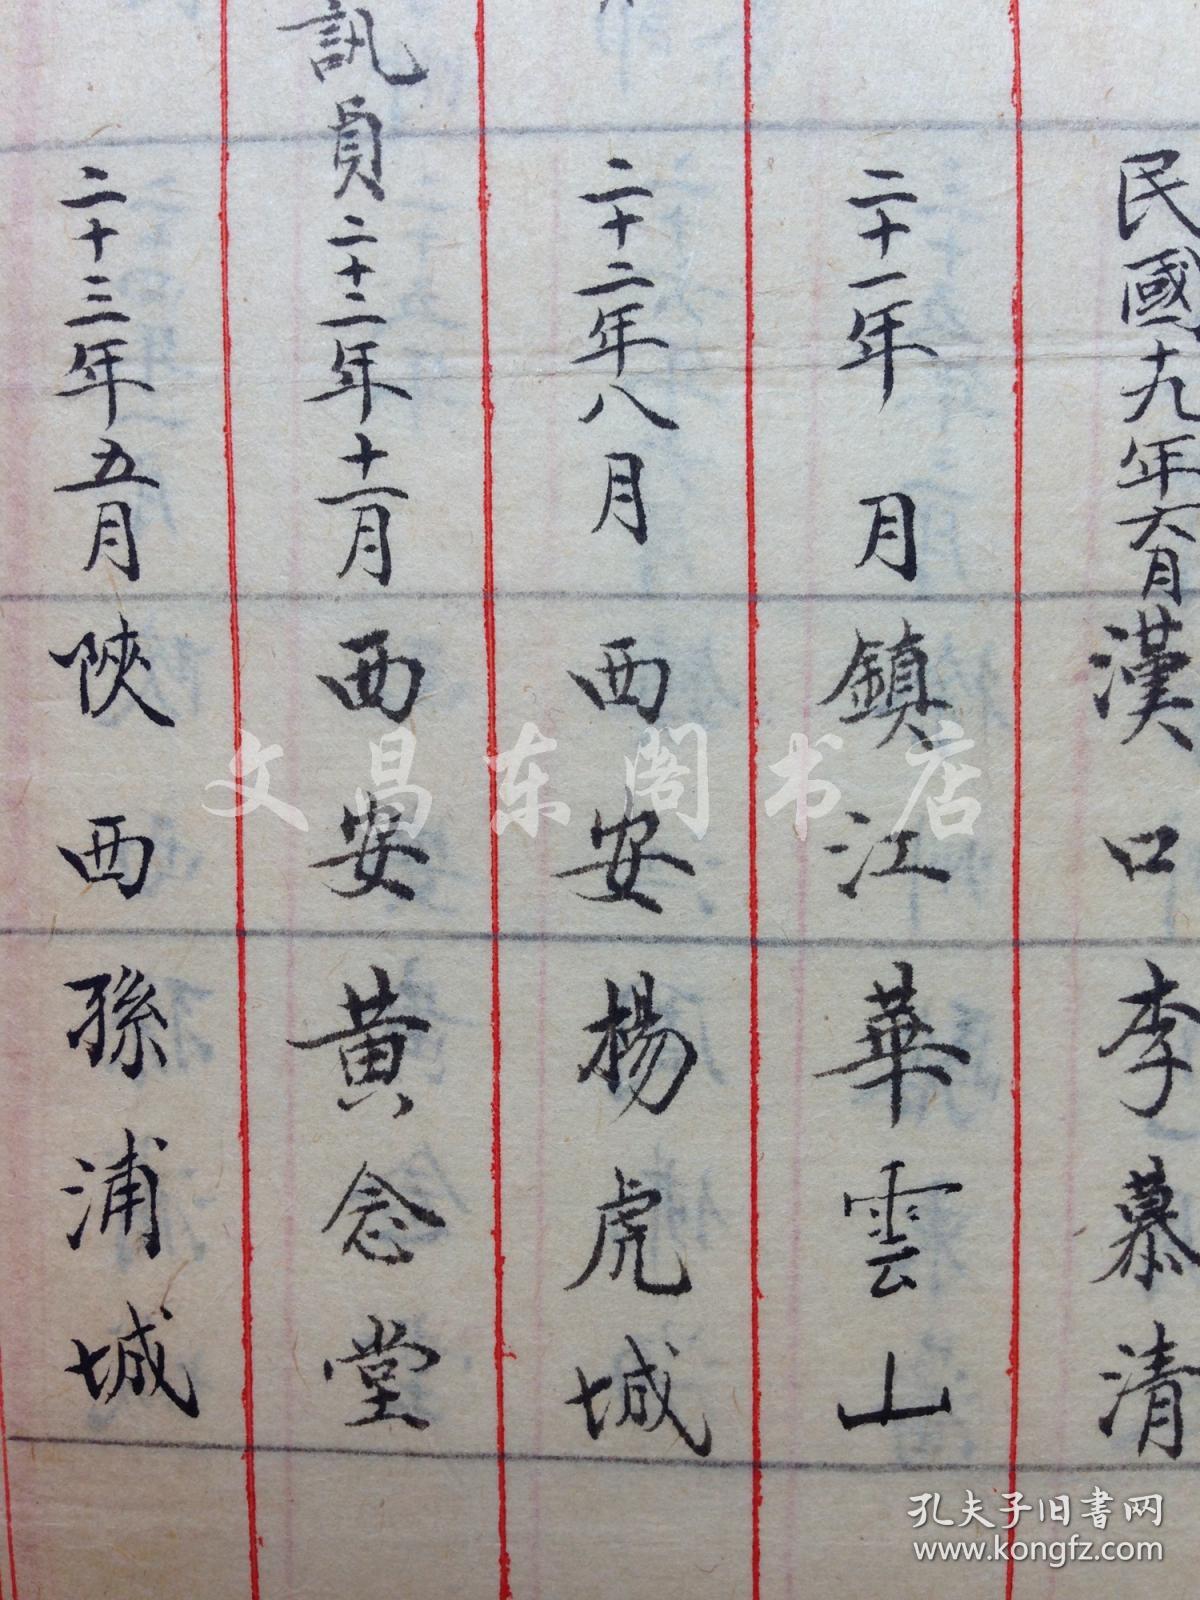 民國十九年六月漢口李慕清
二十一年 月鎮江華雲山
二十二年八月西安楊虎城
訊員二十二年十一月西安黃念堂
二十三年五月陝西孫浦城
文昌东阁书店
孔夫子旧书网
www.kongfz.com